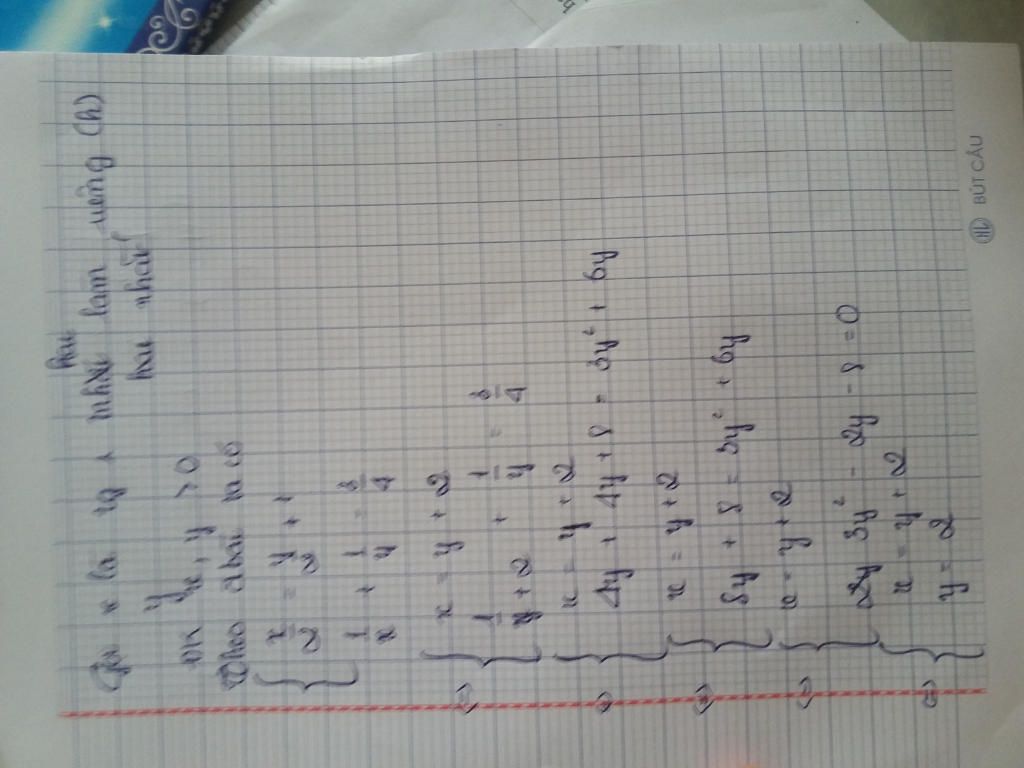 Gọi x là tg 1 nhếu làm riêng (h)
hai
y hai nhếu
ĐK x, y > 0
Theo có
{ x/2 = y/2 + 1
1/x + 1/y = 3/4
<=> { x = y + 2
1/y + 2 + 1/y = 3/4
<=> { x = y + 2
4y + 4y + 8 = 3y² + 6y
<=> { x = y + 2
8y + 8 = 3y² + 6y
<=> { x = y + 2
3y² - 2y - 8 = 0
<=> { x = y + 2
y = 2
BÚT CẦU